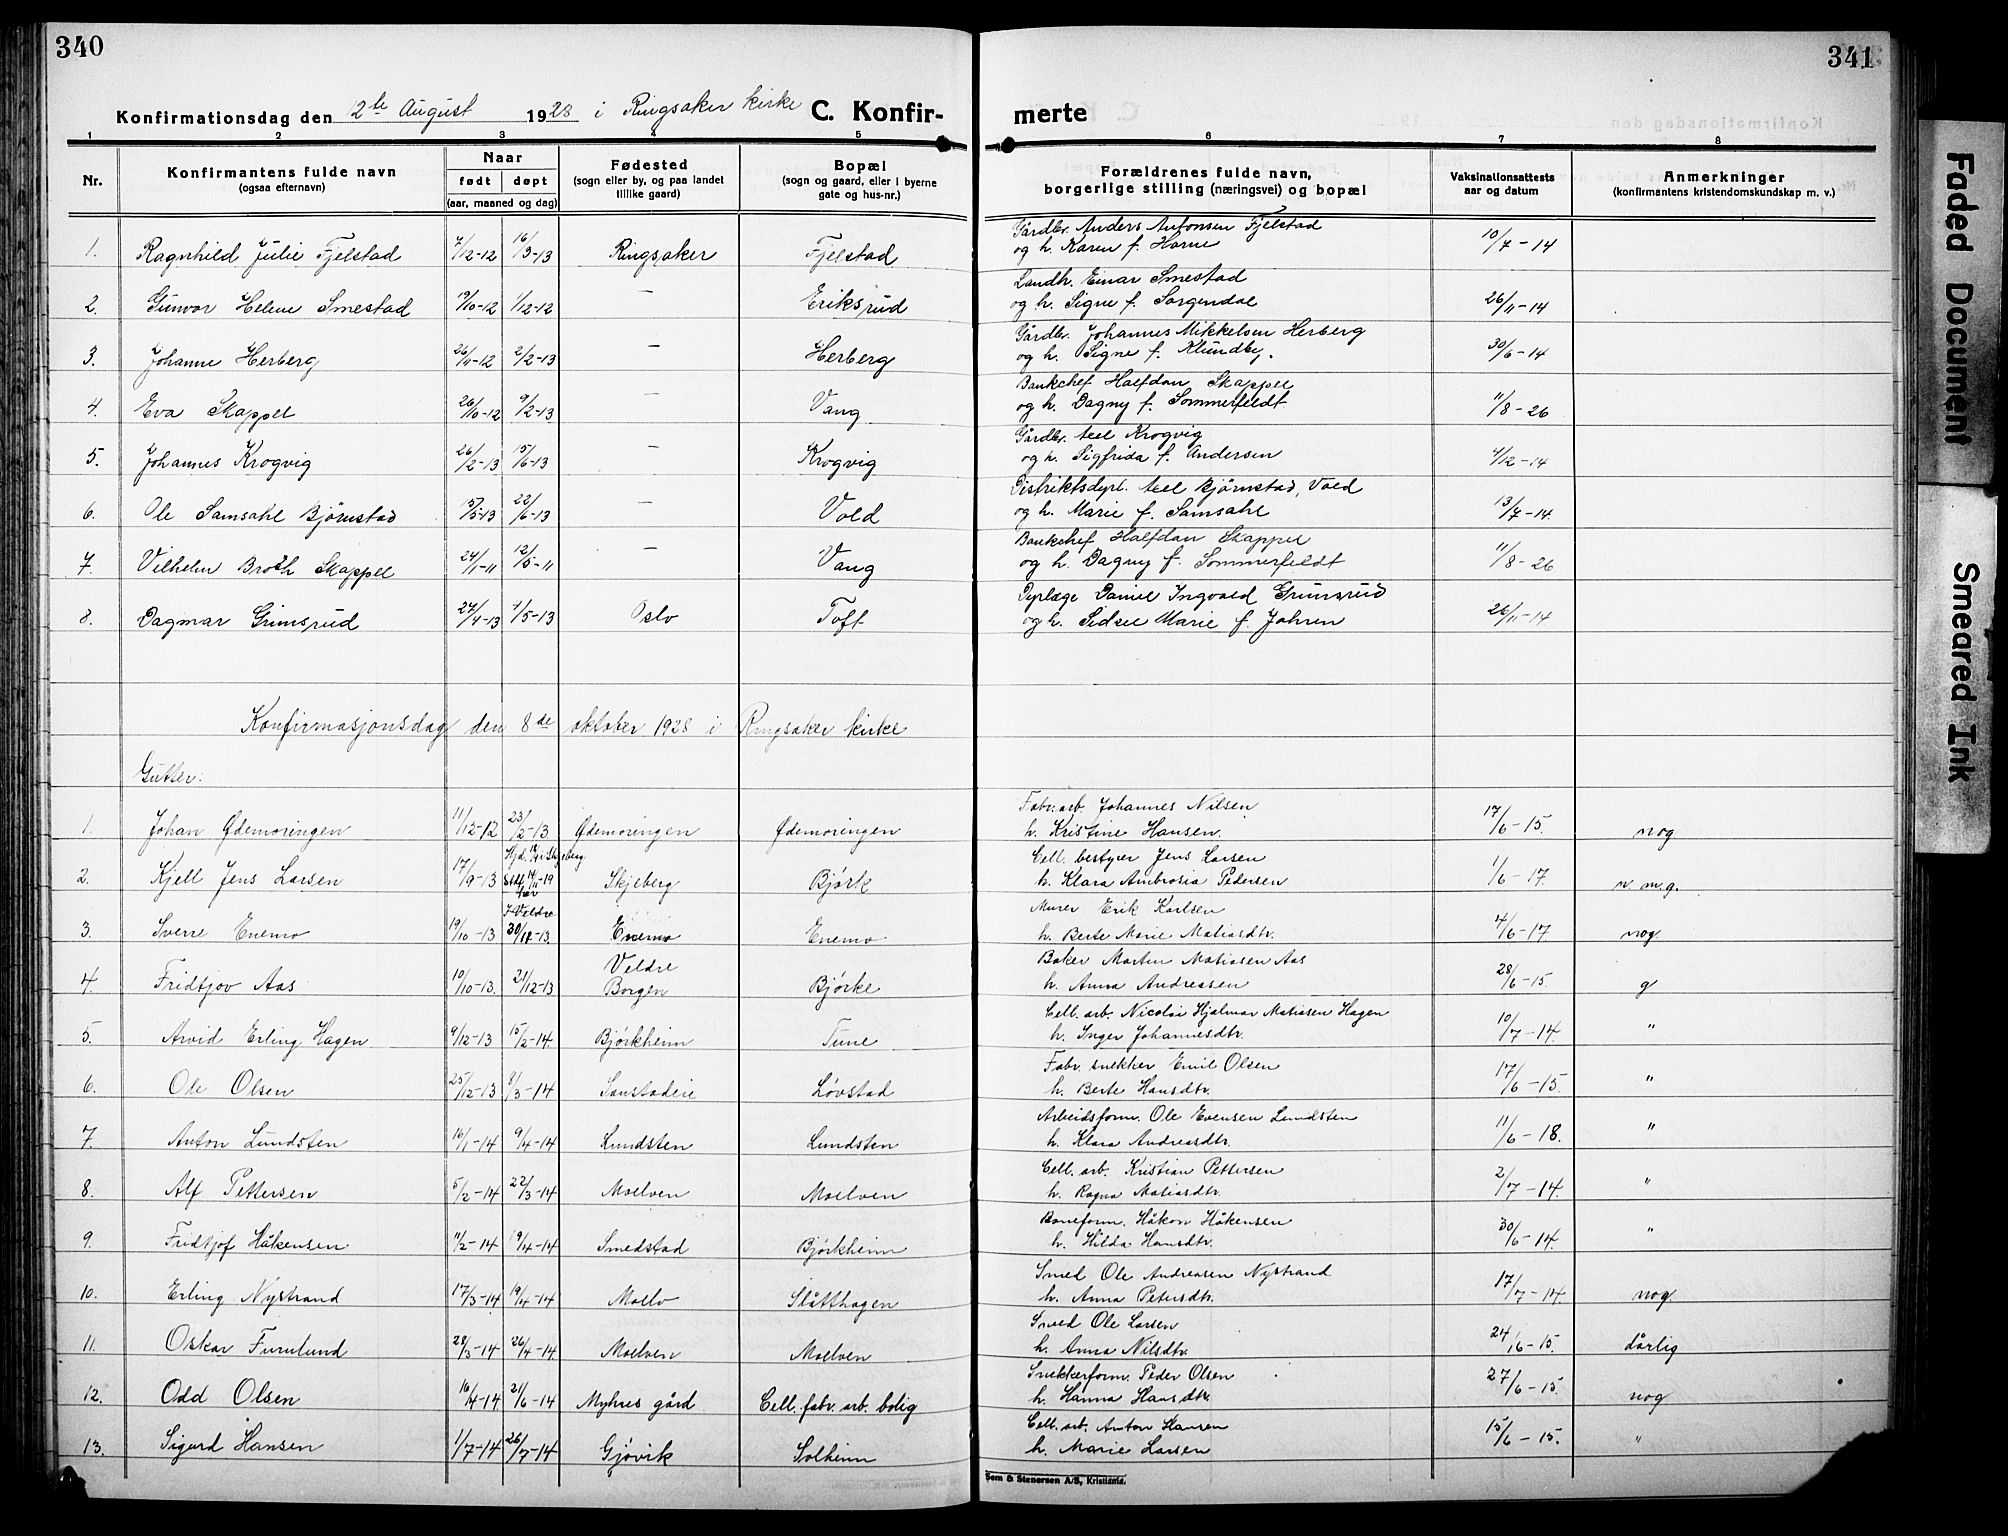 340
341
Konfirmationsdag den 12te August 1928 i Ringsaker kirke
C. Konfir-
merte
1 2 3 4 5 6 7 8
Nr.
Konfirmantens fulde navn
(ogsaa efternavn)
Naar
født døpt
(aar, maaned og dag)
Fødested
(sogn eller by, og paa landet
tillike gaard)
Bopæl
(sogn og gaard, eller i byerne
gate og hus-nr.)
Forældrenes fulde navn,
borgerlige stilling (næringsvei) og bopæl
Vaksinationsattests
aar og datum
Anmerkninger
(konfirmantens kristendomskundskap m. v.)
Gårdbr. Anders Antonsen Fjelstad
1. Ragnhild Julie Fjelstad 7/12-12 16/3-13 Ringsaker Fjelstad og h. Karen f. Horne 10/7-14
Landh. Einar Smestad
2. Gunvor Helene Smestad 19/10-12 1/12-12 — Eriksrud og h. Signe f. Sorgendal 26/11-14
Gårdbr. Johannes Mikkelsen Herberg
3. Johanne Herberg 26/11-12 2/2-13 — Herberg og h. Signe f. Klundby. 30/6-14
Bankchef Halfdan Skappel
4. Eva Skappel 26/10-12 9/2-13 — Vang og h. Dagny f. Sommerfeldt 11/8-26
Gårdbr. Krogvig
5. Johannes Krogvig 26/2-13 15/6-13 — Krogvig og h. Sigfrida f. Andersen 4/12-14
Distriktsdyrl. Bjørnstad, Vold
6. Ole Samsahl Bjørnstad 15/5-13 22/6-13 — Vold og h. Marie f. Samsahl 13/7-14
Bankchef Halfdan Skappel
7. Vilhelm Broch Skappel 24/1-11 12/5-11 — Vang og h. Dagny f. Sommerfeldt 11/8-26
Dyrlæge Daniel Ingvald Grimsrud
8. Dagmar Grimsrud 27/4-13 4/5-13 Oslo Toft og h. Sidsel Marie f. Johren 26/11-14
Konfirmasjonsdag den 8de oktober 1928 i Ringsaker kirke
Gutter:
Fabr. arb. Johannes Nilsen
1. Johan Ødemoringen 11/12-12 23/2-13 Ødemoringen Ødemoringen h. Kristine Hansen. 17/6-15. nog
Cell. bestyrer Jens Larsen
2. Kjell Jens Larsen 17/9-13 Skjeberg Bjørk h. Klara Ambrosia Pedersen 1/6-17. n.m.g.
I Veldre Murer Erik Karlsen
3. Sverre Enemo 19/10-13 30/11-13 Enemo Enemo h. Berte Marie Matiasdtr. 4/6-17 nog.
Veldre Baker Morten Matiasen Aas
4. Fridtjov Aas 10/10-13. 21/12-13 Borgen Bjørke h. Anna Andreassen 28/6-15. g
Cell. arb. Nicolai Hjalmar Matiasen Hagen
5. Arvid Erling Hagen 9/12-13 15/2-14. Bjørkheim Tune h. Inger Johannesdtr. 10/7-14. "
Fabr. snekker Emil Olsen
6. Ole Olsen 25/12-13 8/3-14 Sanstadeie Løvstad h. Berte Hansdtr. 17/6-15. "
Arbeidsform. Ole Evensen Lundsten
7. Anton Lundsten 16/1-14 9/4-14 Lundsten Lundsten h. Klara Andreasdtr. 11/6-18. "
Cell. arb. Kristian Pettersen
8. Alf Pettersen 5/2-14 22/3-14 Moelven Moelven h. Ragna Matiasdtr. 2/7-14. "
Boneform. Håkon Håkensen
9. Fridtjof Håkensen 11/2-14 19/4-14 Smedstad Bjørkheim h. Hilda Hansdtr. 30/6-14. "
Smed Ole Andreasen Nystrand
10. Erling Nystrand 17/3-14 19/4-14 Moelv Slåtthagen h. Anna Petersdtr. 17/7-14. nog.
Smed Ole Larsen
11. Oskar Furulund 28/3-14 26/4-14 Moelven Moelven h. Anna Nilsdtr. 24/6-15. dårlig
Snekkerform. Peder Olsen
12. Odd Olsen 16/4-14 21/6-14 Myhres gård. Cell. fabr. arb. bolig h. Hanna Hansdtr. 27/6-15. nog
Cell. arb. Anton Hansen
13. Sigurd Hansen 1/7-14 26/7-14 Gjøvik Solheim h. Marie Larsen 15/6-15. "
Sem & Stenersen A/S, Kristiania.
Faded Document
Smeared Ink